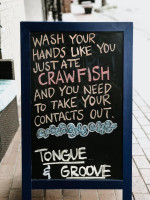 WASH YOUR
HANDS LIKE YOU
JUST ATE
CRAWFISH
AND YOU NEED
TO TAKE YOUR
CONTACTS OUT.
TONGUE
& GROOVE